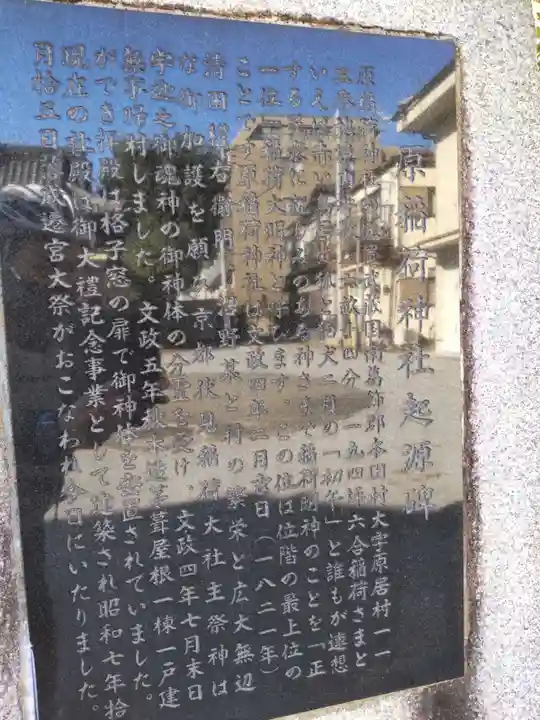 原稲荷神社起源碑
原稲荷神社の位置武蔵国南葛飾郡本田村大字原居村一一
五番地 畝十四分 一九四坪 六合稲荷さまと
いえば赤い鳥居 二月の「初午」と誰もが連想
する 神さまで稲荷明神のことを「正
一位稲荷大明神と呼びます。この位は位階の最上位の
ことです 原稲荷神社は文政四年二月吉日(一八二一年)
清田 右衛門 沼野某と村の繁栄と広大無辺
な御加護を願い京都伏見稲荷大社主祭神は
宇迦之御魂神の御神体の分霊を受け、文政四年七月末日
無事帰村しました。文政五年秋木造茅葺屋根一棟一戸建
ができ拝殿は格子窓の扉で御神体を安置されていました。
現在の社殿は御大禮記念事業として建築され昭和七年拾
月拾五日落成遷宮大祭がおこなわれ今日にいたりました。